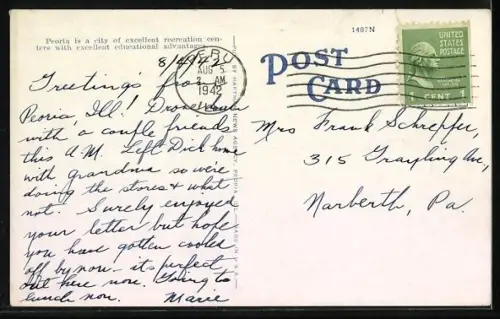 Peoria is a city of excellent recreation cen-
ters with excellent educational advantages.
8/4/42
Greetings from
Peoria, Ill! Drove down
with a couple friends
this A.M. Left Dick home
with grandma so we're
doing the stores & what
not. Surely enjoyed
your letter but hope
you have gotten cooled
off by now – its perfect
out here now. Going to
lunch now. Marie
PERU
AUG 5
AM
1942
ILL.
1487N
POST
CARD
UNITED
STATES
POSTAGE
CENT
Mrs Frank Schrepfer,
315 Grayling Ave,
Narberth, Pa.